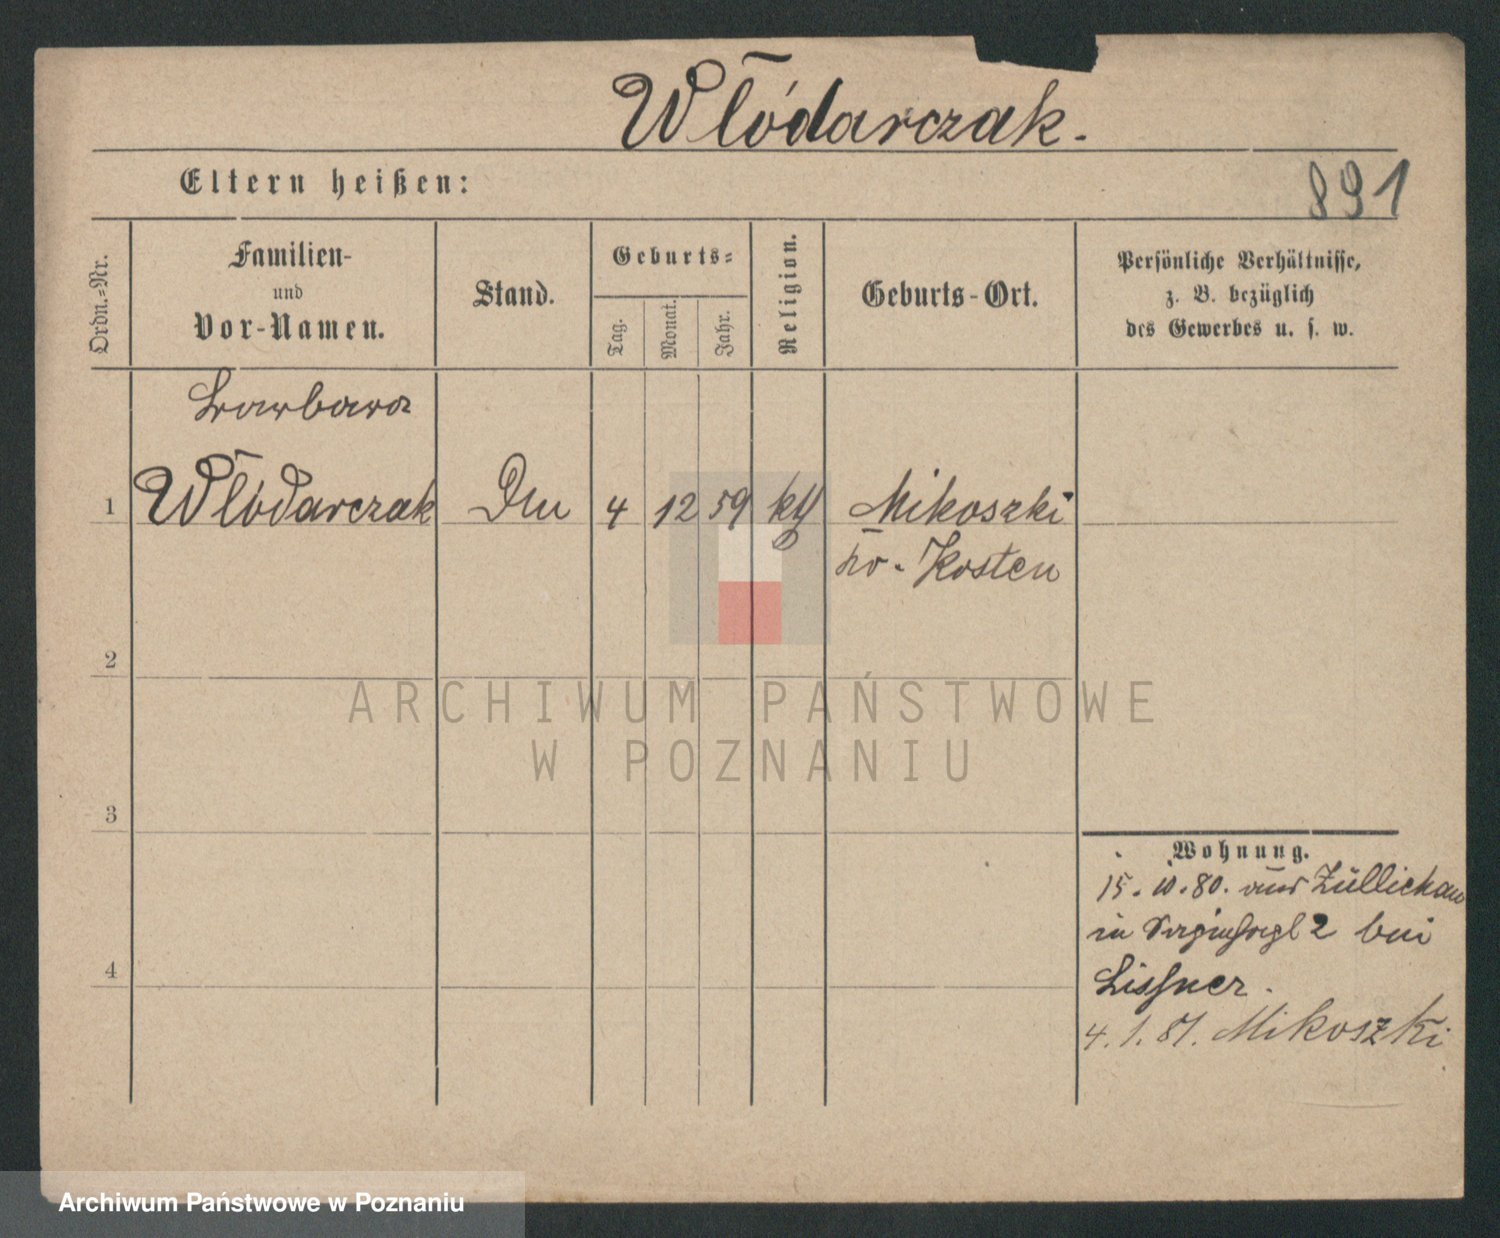 Włódarczak.
Eltern heißen:
891
Ordn.=Nr.
Familien-
und
Vor-Namen.
Stand.
Geburts=
Tag.
Monat.
Jahr.
Religion.
Geburts-Ort.
Persönliche Verhältnisse,
z. B. bezüglich
des Gewerbes u. s. w.
Barbara
1 Włódarczak 4 12 59 kth Mikoszki
Kr. Kosten
2
3
4
Wohnung.
15. 10. 80. aus Züllichau
in 2 bei
Lissner.
4. 1. 81. Mikoszki
ARCHIWUM PAŃSTWOWE
W POZNANIU
Archiwum Państwowe w Poznaniu